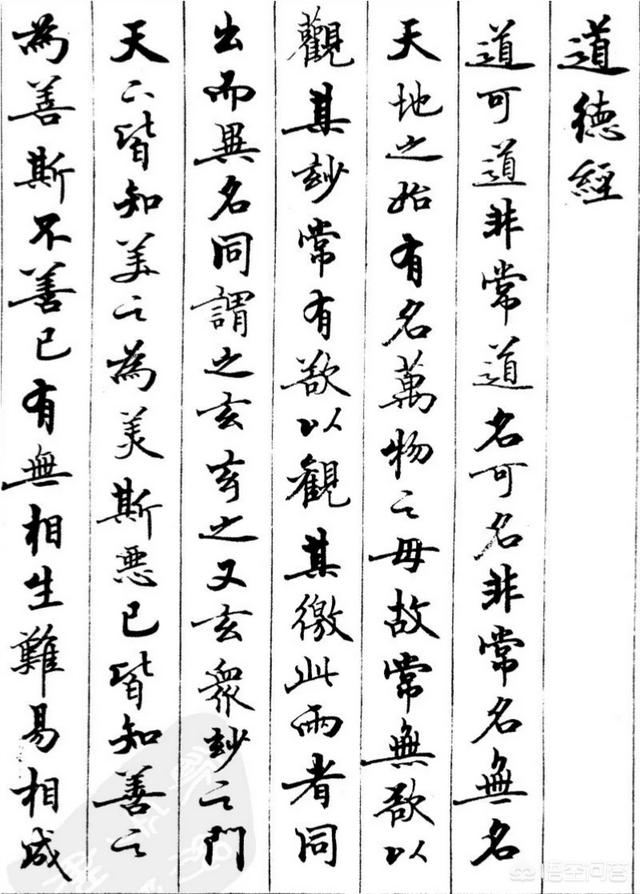 道德經
道可道非常道名可名非常名無名
天地之始有名萬物之母故常無欲以
觀其玅常有欲以觀其徼此兩者同
出而異名同謂之玄玄之又玄眾玅之門
天下皆知美之為美斯惡已皆知善之
為善斯不善已有無相生難易相成
悟空问答